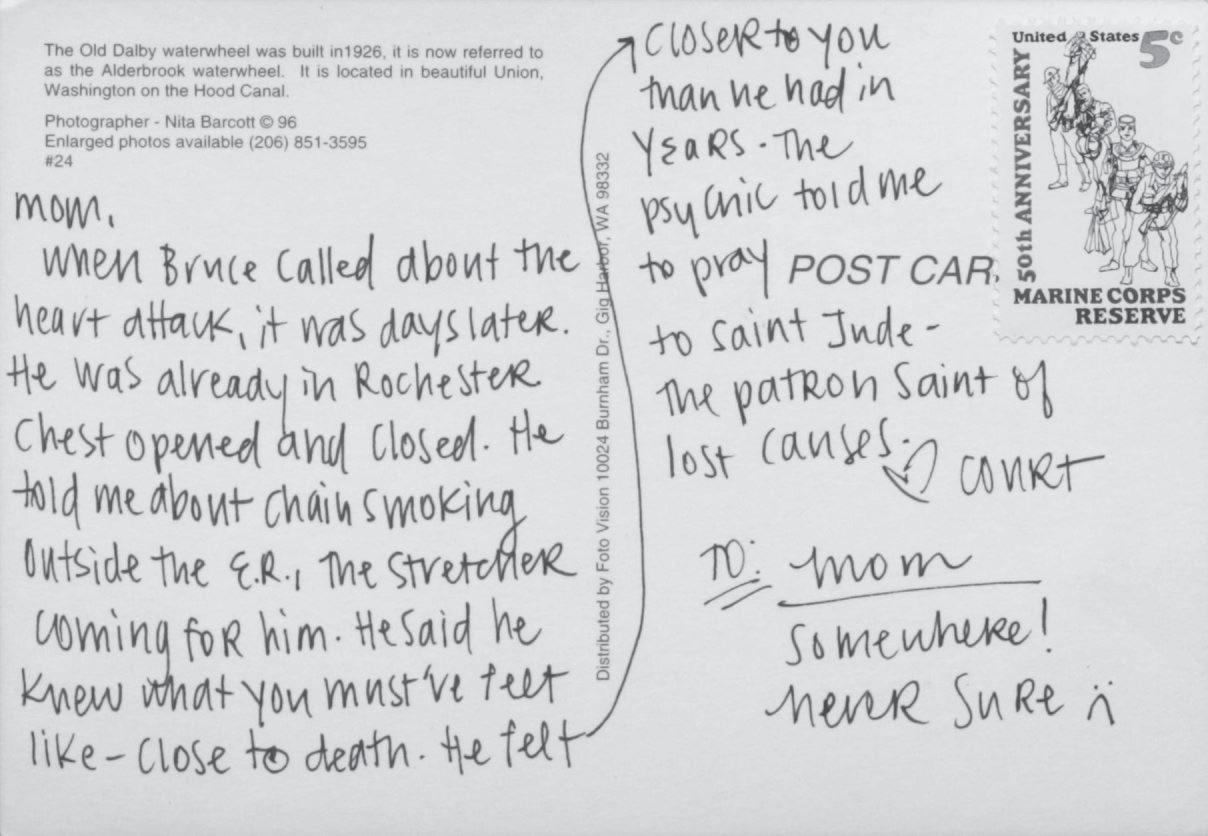 The Old Dalby waterwheel was built in1926, it is now referred to
as the Alderbrook waterwheel. It is located in beautiful Union,
Washington on the Hood Canal.
Photographer - Nita Barcott © 96
Enlarged photos available (206) 851-3595
#24
mom,
when Bruce called about the
heart attack, it was days later.
He was already in Rochester
Chest opened and closed. He
told me about chain smoking
outside the E.R., the stretcher
coming for him. He said he
knew what you must've felt
like - close to death. He felt
closer to you
than he had in
years. The
psychic told me
to pray
to Saint Jude -
the patron Saint of
lost causes.
♡ Court
Distributed by Foto Vision 10024 Burnham Dr., Gig Harbor, WA 98332
POST CAR
United States 5c
50th ANNIVERSARY
MARINE CORPS
RESERVE
TO: mom
somewhere!
never sure :(